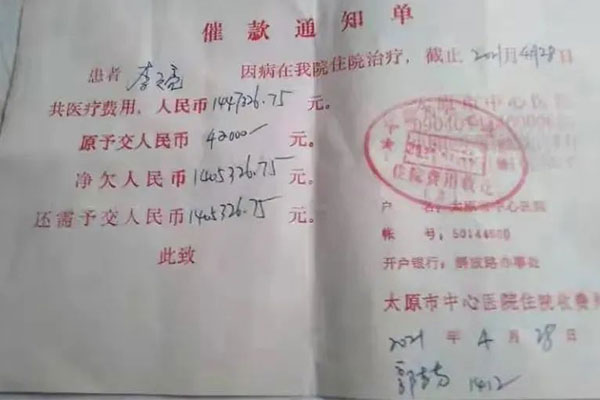 催款通知单
患者 李 亮 因病在我院住院治疗，截止 2021年4月28日
共医疗费用，人民币 1447326.75 元。
原予交人民币 42000 元。
净欠人民币 1405326.75 元。
还需予交人民币 1405326.75 元。
此致
太原市中心医
住院费用
户 名：太原市中心医院
帐 号：50144600
开户银行：解放路办事处
太原市中心医院住院收费
2021 年 4 月 28 日
1412